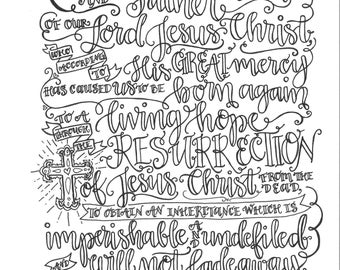 AND Father
OF OUR Lord Jesus Christ,
WHO ACCORDING TO His GREAT mercy
HAS CAUSED US TO BE born again
TO A living hope
THROUGH THE RESURRECTION
of Jesus Christ FROM THE DEAD,
TO OBTAIN AN INHERITANCE WHICH IS
imperishable & undefiled
AND will not fade away